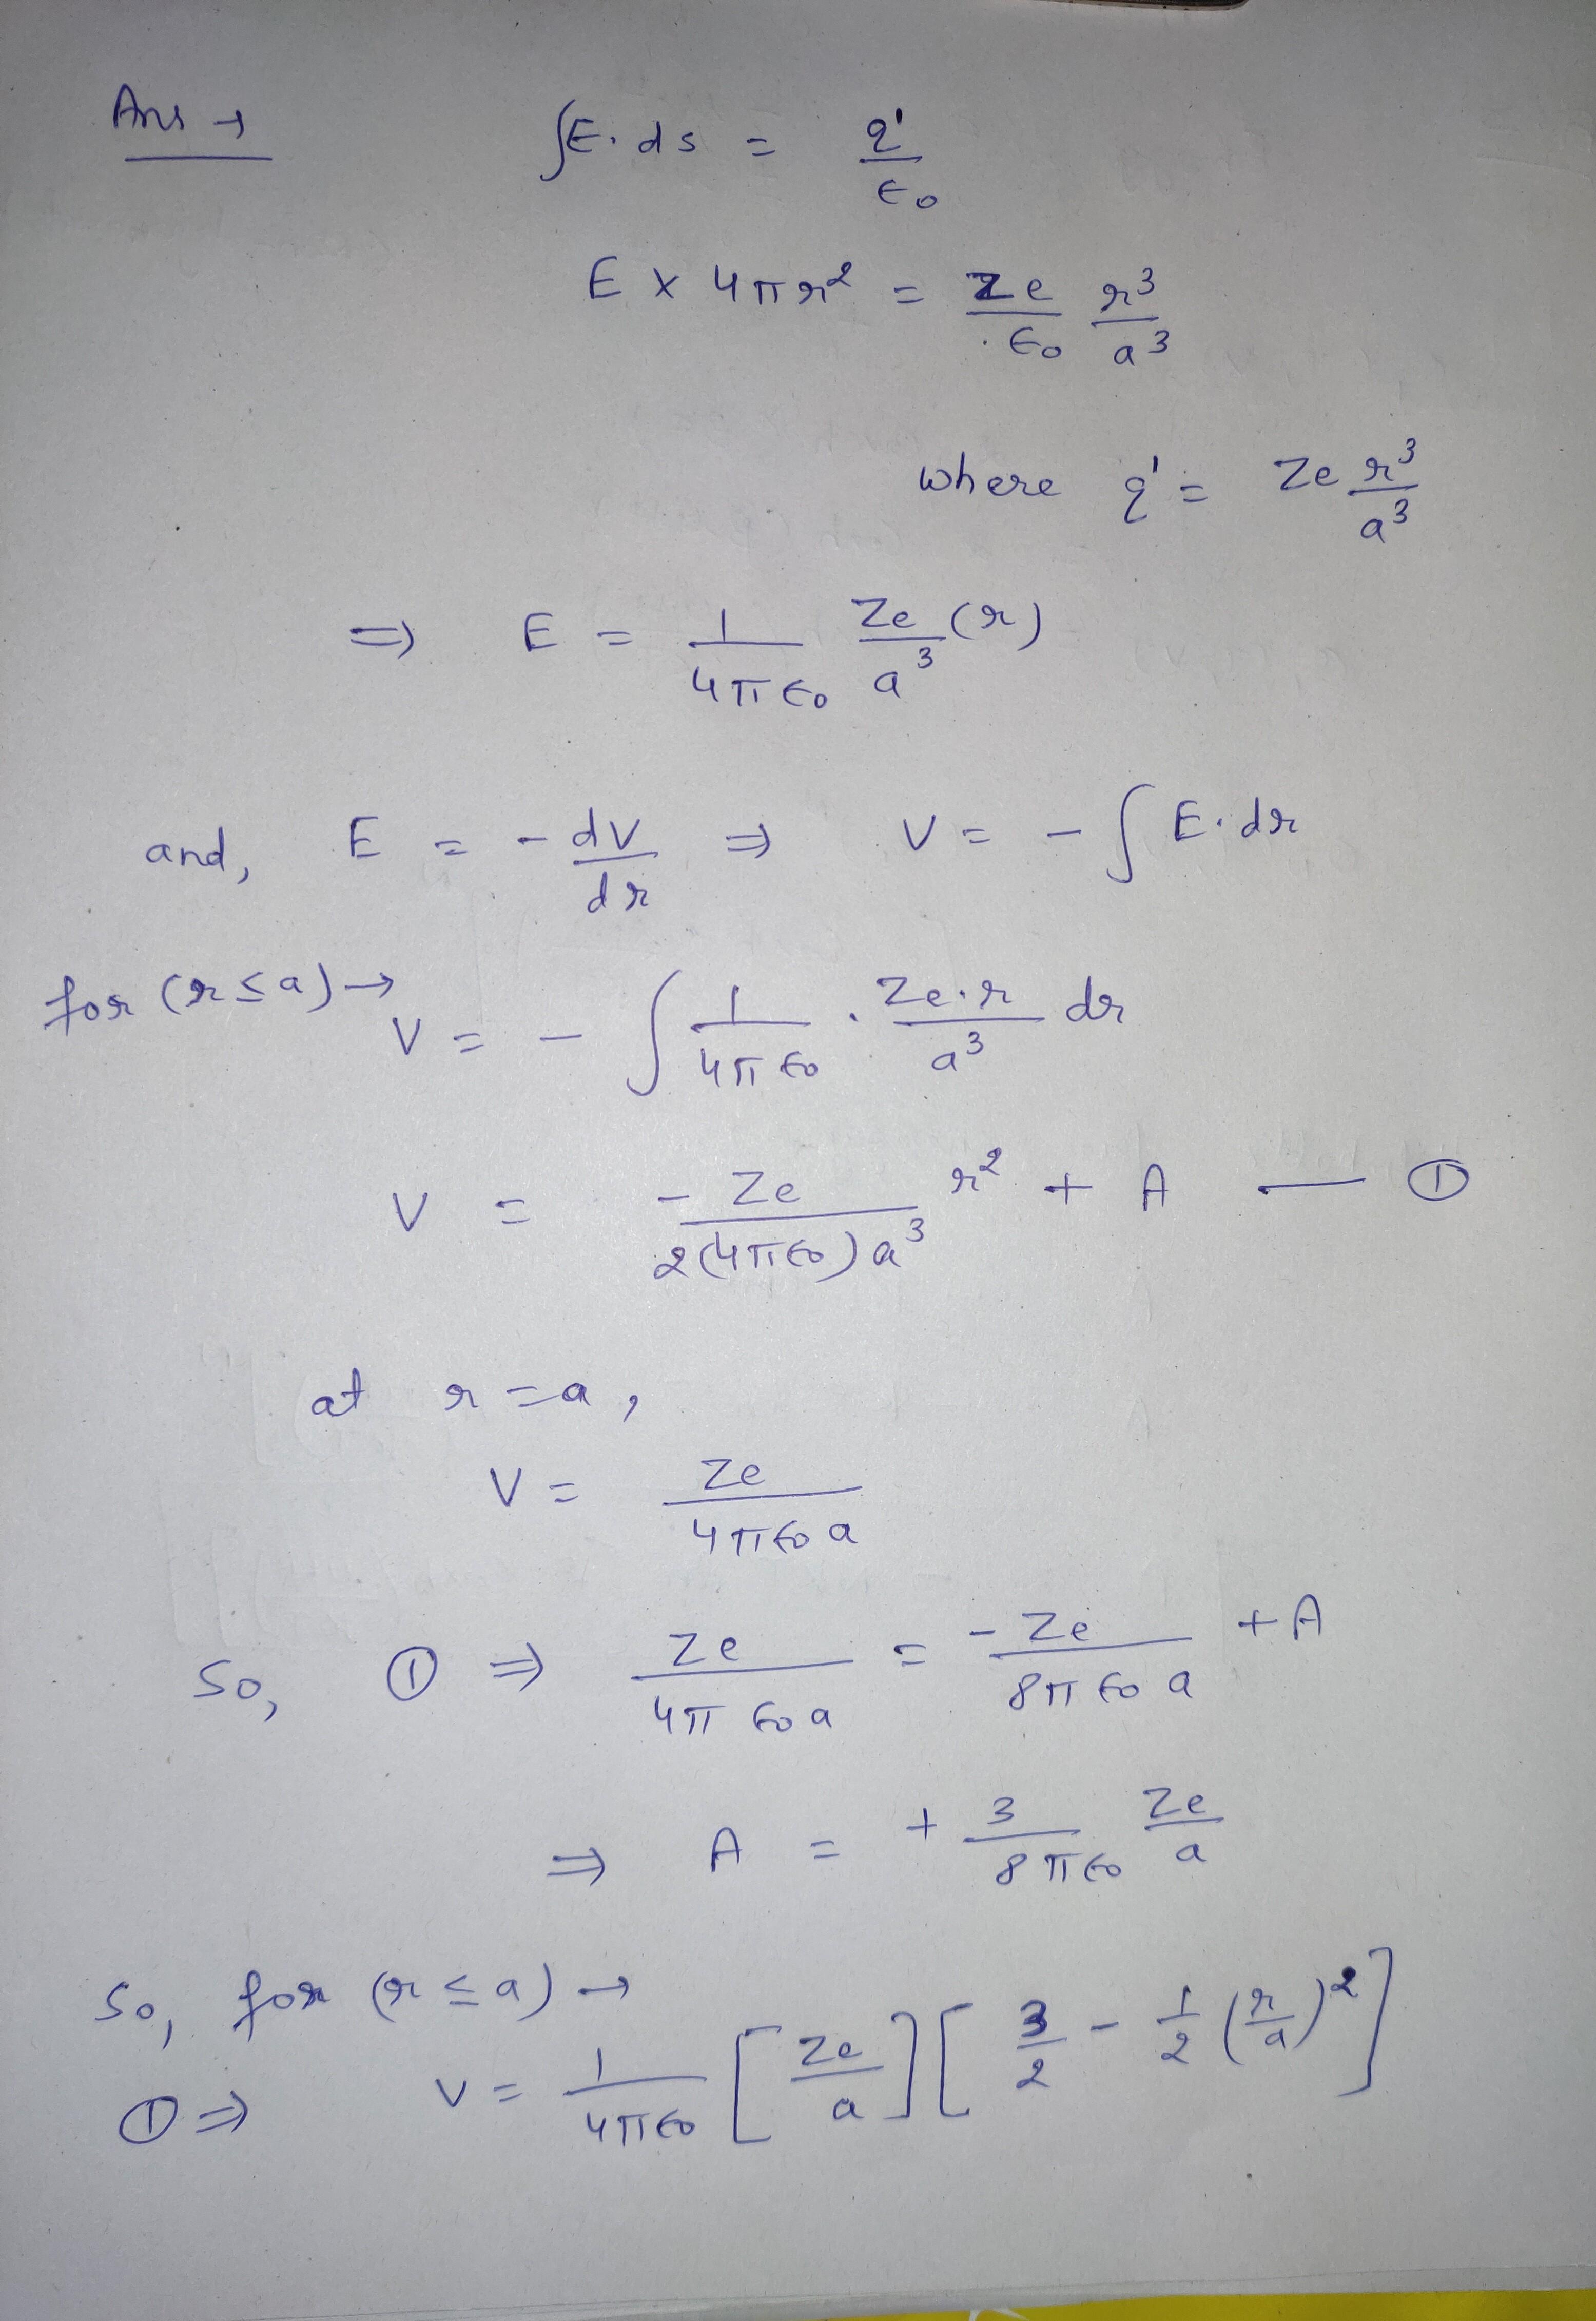 Ans → ∫E.ds = q'/ϵ₀
E × 4πr² = Ze/ϵ₀ r³/a³
where q' = Ze r³/a³
⇒ E = 1/4πϵ₀ Ze/a³ (r)
and, E = - dV/dr ⇒ V = - ∫ E.dr
for (r ≤ a) → V = - ∫ 1/4πϵ₀ . Ze.r/a³ dr
V = - Ze/2(4πϵ₀)a³ r² + A — ①
at r = a,
V = Ze/4πϵ₀a
So, ① ⇒ Ze/4πϵ₀a = - Ze/8πϵ₀a + A
⇒ A = + 3/8πϵ₀ Ze/a
So, for (r ≤ a) →
① ⇒ V = 1/4πϵ₀ [Ze/a] [3/2 - 1/2 (r/a)²]